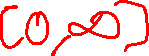 [0,∞]